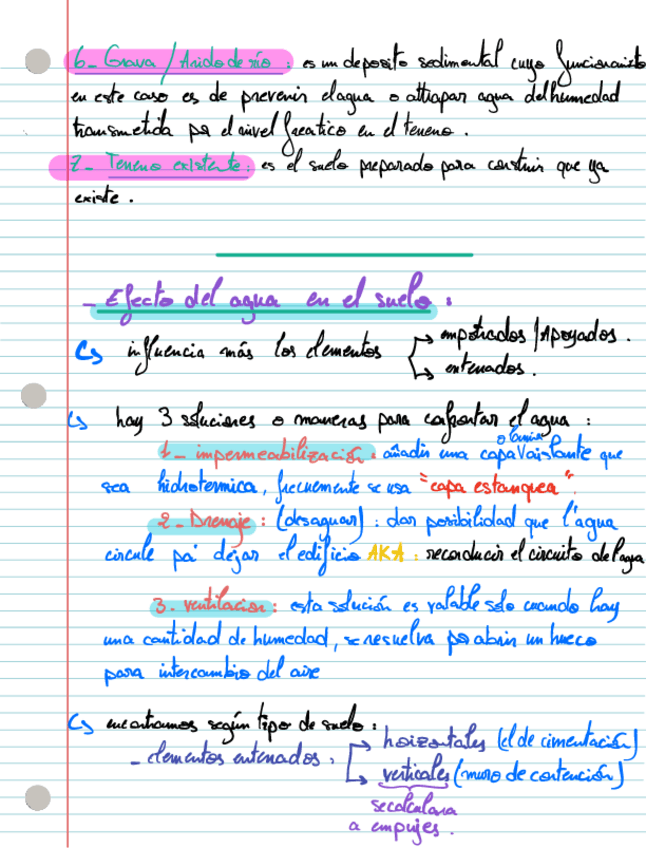 6_ Grava / Arido de río : es un deposito sedimental cuyo funcionamiento
en este caso es de prevenir el agua o attrapar agua del humedad
transmetida por el nivel freatico en el terreno .
7_ Terreno existente : es el suelo preparado para construir que ya
existe .
_ Efecto del agua en el suelo :
influencia más los elementos
→ empotrados / Apoyados .
→ enterrados .
hay 3 soluciones o maneras para confrontar el agua :
1_ impermeabilización : añadir una capa o lamina aislante que
sea hidrotermica, frecuemente se usa "capa estanquea".
2_ Drenaje : (desaguar) : dar posibilidad que l'agua
circule pa' dejar el edificio AKA : reconducir el circuito del agua
3. ventilacion : esta solución es valable solo cuando hay
una cantidad de humedad, se resuelva por abrir un hueco
para intercambio del aire
encontramos según tipo de suelo :
_ elementos enterrados :
→ horizontales (el de cimentación)
→ verticales (muro de contención)
se calculara
a empujes .